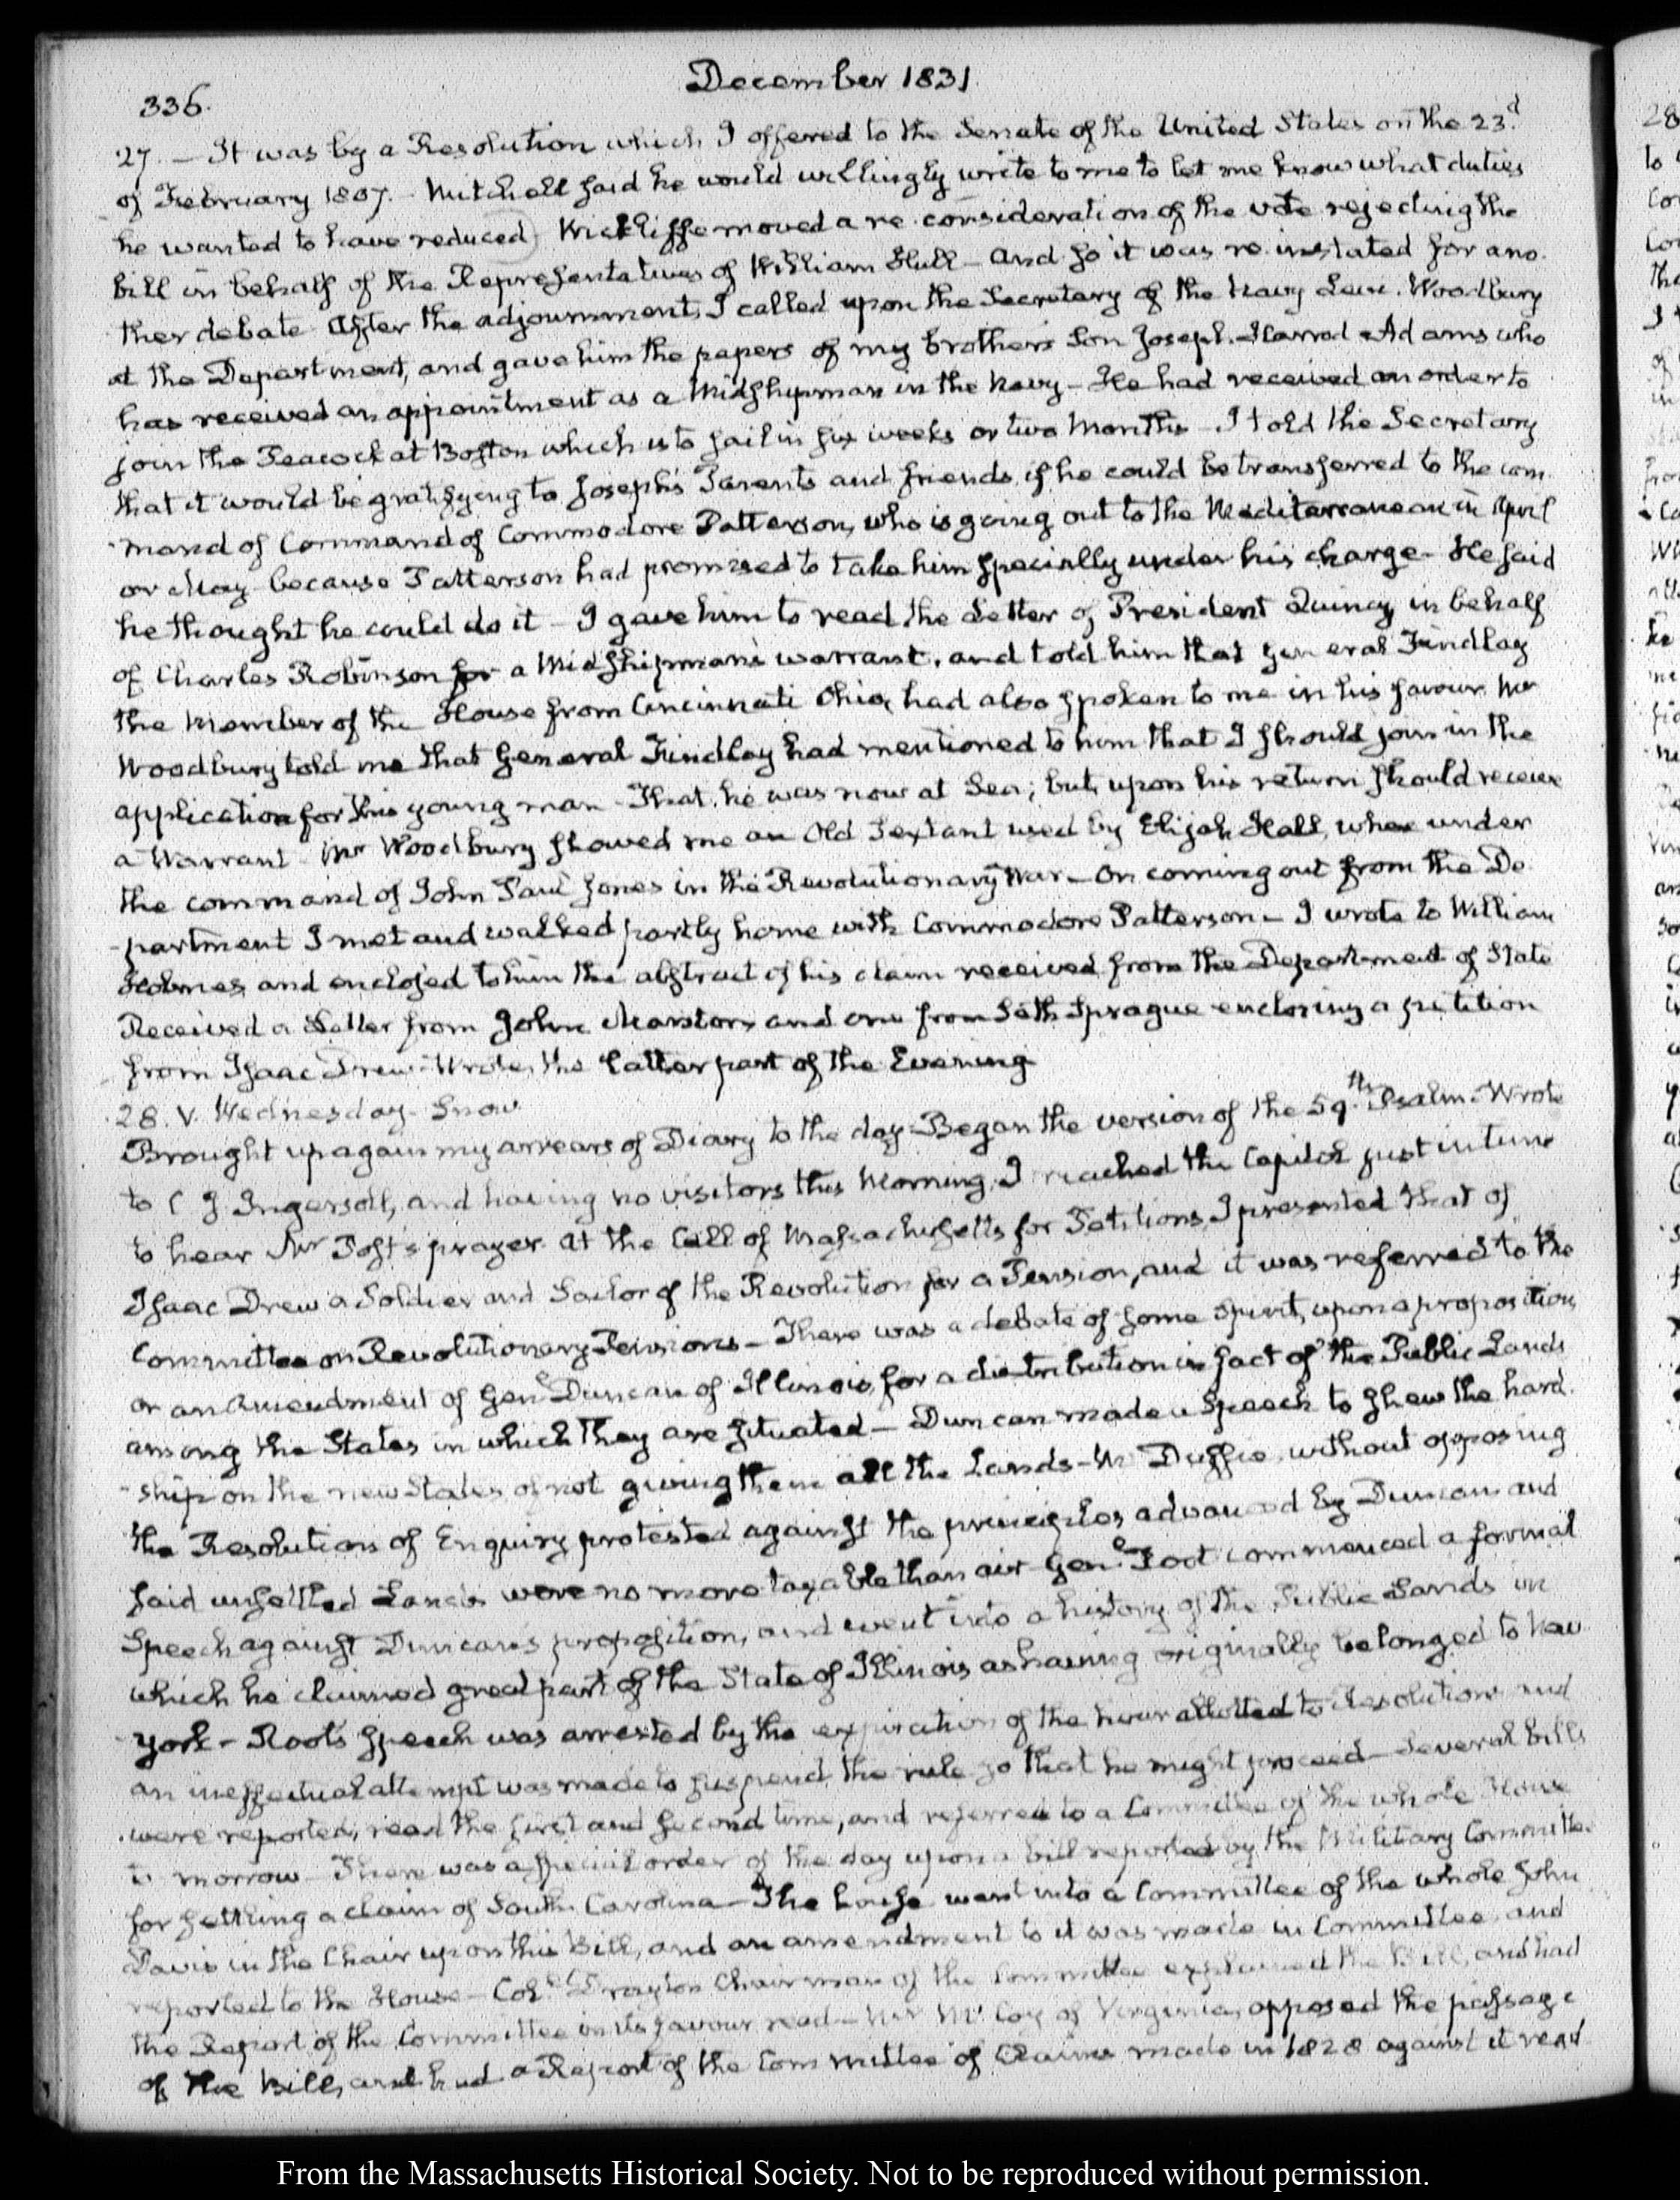 December 1831
336.
27. — It was by a Resolution which I offered to the Senate of the United States on the 23.d
of February 1807. Mitchell said he would willingly write to me to let me know what duties
he wanted to have reduced) Wickliffe moved a re-consideration of the vote rejecting the
bill in behalf of the Representatives of William Hull — and so it was re-instated for ano-
ther debate. After the adjournment, I called upon the Secretary of the Navy Levi Woodbury
at the Department, and gave him the papers of my brother's Son Joseph Harrod Adams who
has received an appointment as a Midshipman in the Navy — He had received an order to
join the Peacock at Boston which is to sail in six weeks or two Months — I told the Secretary
that it would be gratifying to Joseph's Parents and friends, if he could be transferred to the com-
mand of Command of Commodore Patterson, who is going out to the Mediterranean in April
or May because Patterson had promised to take him specially under his charge — He said
he thought he could do it — I gave him to read the Letter of President Quincy in behalf
of Charles Robinson for a Midshipman's warrant, and told him that General Findlay
the Member of the House from Cincinnati Ohio, had also spoken to me in his favour. Mr
Woodbury told me that General Findlay had mentioned to him that I should join in the
application for this young man — That he was now at Sea; but upon his return should receive
a Warrant. Mr Woodbury showed me an Old Sextant used by Elijah Hall, when under
the command of John Paul Jones in the Revolutionary War — On coming out from the De-
partment I met and walked partly home with Commodore Patterson — I wrote to William
Holmes, and enclosed to him the abstract of his claim received from the Department of State
Received a Letter from John Marston, and one from Seth Sprague enclosing a petition
from Isaac Drew — Wrote, the latter part of the Evening
28. V. Wednesday. Snow.
Brought up again my arrears of Diary to the day — Began the version of the 59.th Psalm. Wrote
to C J Ingersoll, and having no visitors this Morning, I reached the Capitol just in time
to hear Mr Post's prayer. At the Call of Massachusetts for Petitions, I presented that of
Isaac Drew a Soldier and Sailor of the Revolution for a Pension, and it was referred to the
Committee on Revolutionary Pensions — There was a debate of some Spirit, upon a proposition,
or an Amendment of Genl Duncan of Illinois, for a distribution in fact of the Public Lands
among the States in which they are situated — Duncan made a Speech to shew the hard-
ship on the new States of not giving them all the Lands — Mc Duffie, without opposing
the Resolution of Enquiry protested against the principles advanced by Duncan and
said unsettled Lands were no more taxable than air. Genl Root commenced a formal
Speech against Duncan's proposition, and went into a history of the Public Lands in
which he claimed great part of the State of Illinois as having originally belonged to New
York — Root's Speech was arrested by the expiration of the hour allotted to Resolutions and
an ineffectual attempt was made to suspend the rule so that he might proceed — Several bills
were reported, read the first and second time, and referred to a Committee of the whole House
to morrow — There was a special order of the day upon a bill reported by the Military Committee
for settling a claim of South Carolina — The House went into a Committee of the whole John
Davis in the Chair upon this Bill, and an amendment to it was made in Committee, and
reported to the House — Coll Drayton Chairman of the Committee explained the Bill, and had
the Report of the Committee in its favour read — Mr Mc Coy of Virginia, opposed the passage
of the Bill, and had a Report of the Committee of Claims made in 1828 against it read
From the Massachusetts Historical Society. Not to be reproduced without permission.